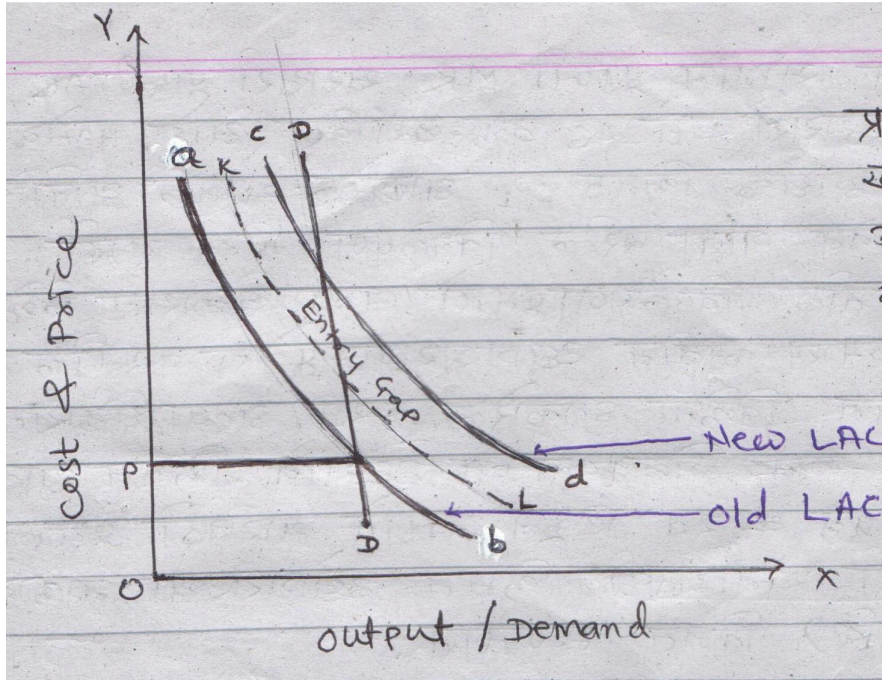 Y
a K C D
Cost & Price
Entry Gap
New LAC
P
d
L
Old LAC
D
b
O
X
Output / Demand